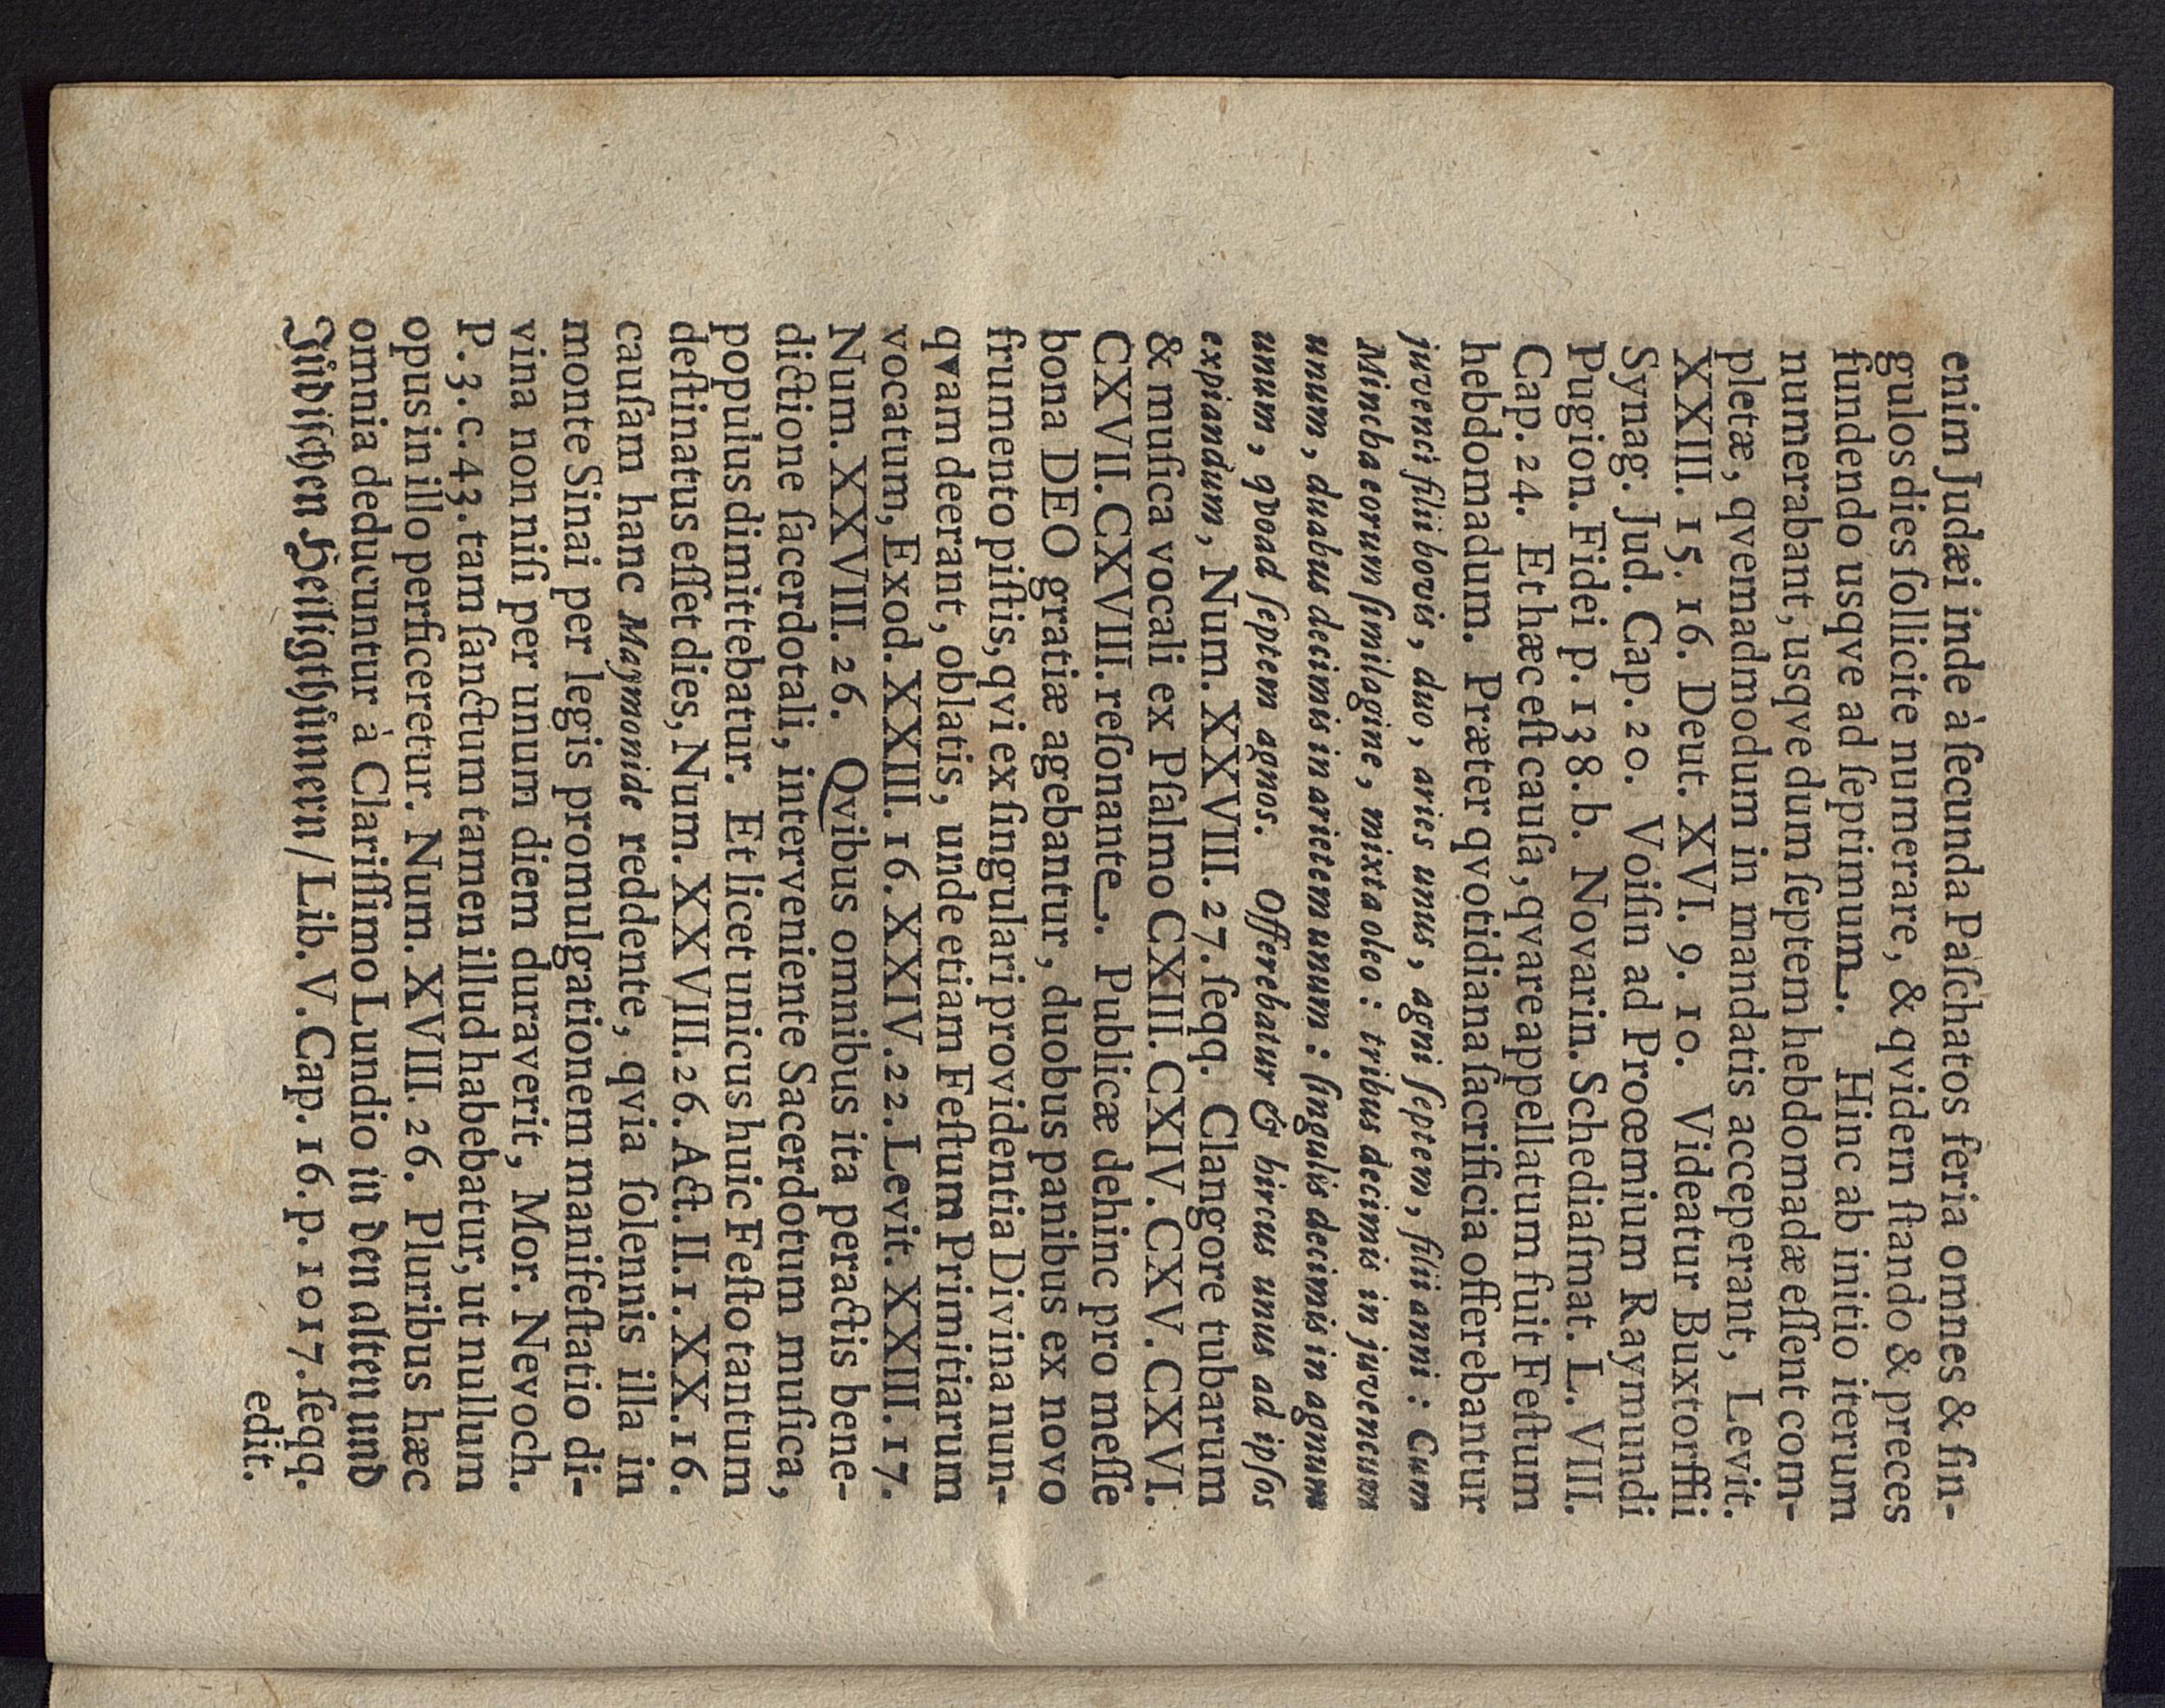 enim Judæi inde à ſecunda Paſchatos feria omnes & ſin-
gulos dies ſollicite numerare, & qvidem ſtando & preces
fundendo usqve ad ſeptimum. Hinc ab initio iterum
numerabant, usqve dum ſeptem hebdomadæ eſſent com-
pletæ, qvemadmodum in mandatis acceperant, Levit.
XXIII. 15. 16. Deut. XVI. 9. 10. Videatur Buxtorffii
Synag. Jud. Cap. 20. Voiſin ad Proœmium Raymundi
Pugion. Fidei p. 138. b. Novarin. Schediaſmat. L. VIII.
Cap. 24. Et hæc eſt cauſa, qvare appellatum fuit Feſtum
hebdomadum. Præter qvotidiana ſacrificia offerebantur
juvenci filii bovis, duo, aries unus, agni ſeptem, filii anni: Cum
Mincha eorum ſimilagine, mixta oleo: tribus decimis in juvencum
unum, duabus decimis in arietem unum: ſingulis decimis in agnum
unum, qvoad ſeptem agnos. Offerebatur & hircus unus ad ipſos
expiandum, Num. XXVIII. 27. ſeqq. Clangore tubarum
& muſica vocali ex Pſalmo CXIII. CXIV. CXV. CXVI.
CXVII. CXVIII. reſonante. Publicæ dehinc pro meſſe
bona DEO gratiæ agebantur, duobus panibus ex novo
frumento piſtis, qvi ex ſingulari providentia Divina nun-
qvam deerant, oblatis, unde etiam Feſtum Primitiarum
vocatum, Exod. XXIII. 16. XXIV. 22. Levit. XXIII. 17.
Num. XXVIII. 26. Qvibus omnibus ita peractis bene-
dictione ſacerdotali, interveniente Sacerdotum muſica,
populus dimittebatur. Et licet unicus huic Feſto tantum
deſtinatus eſſet dies, Num. XXVIII. 26. Act. II. 1. XX. 16.
cauſam hanc Maymonide reddente, qvia ſolennis illa in
monte Sinai per legis promulgationem manifeſtatio di-
vina non niſi per unum diem duraverit, Mor. Nevoch.
P. 3. c. 43. tam ſanctum tamen illud habebatur, ut nullum
opus in illo perficeretur. Num. XVIII. 26. Pluribus hæc
omnia deducuntur à Clariſſimo Lundio in den alten und
Jüdiſchen Heiligthümern / Lib. V. Cap. 16. p. 1017. ſeqq.
edit.